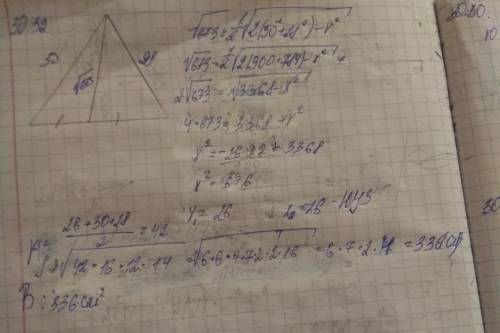 30.32
30
√673
28
√673 = 1/2 √(2(30²+28²) - x²)
√673 = 1/2 √(2(900+784) - x²
2√673 = √(3368 - x²
4·673 = 3368 - x²
x² = -2692 + 3368
x² = 676
x₁ = 26
p = (26+30+28)/2 = 42
S = √(42·16·12·14) = √(6·6·7·7·2·2·16) = 6·7·2·4 = 336 (см
В: 336 см²
30.30.
10
30